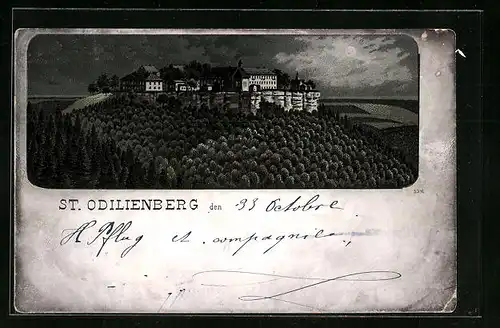 ST. ODILIENBERG den 33 Octobre
H Pflug et compagnie